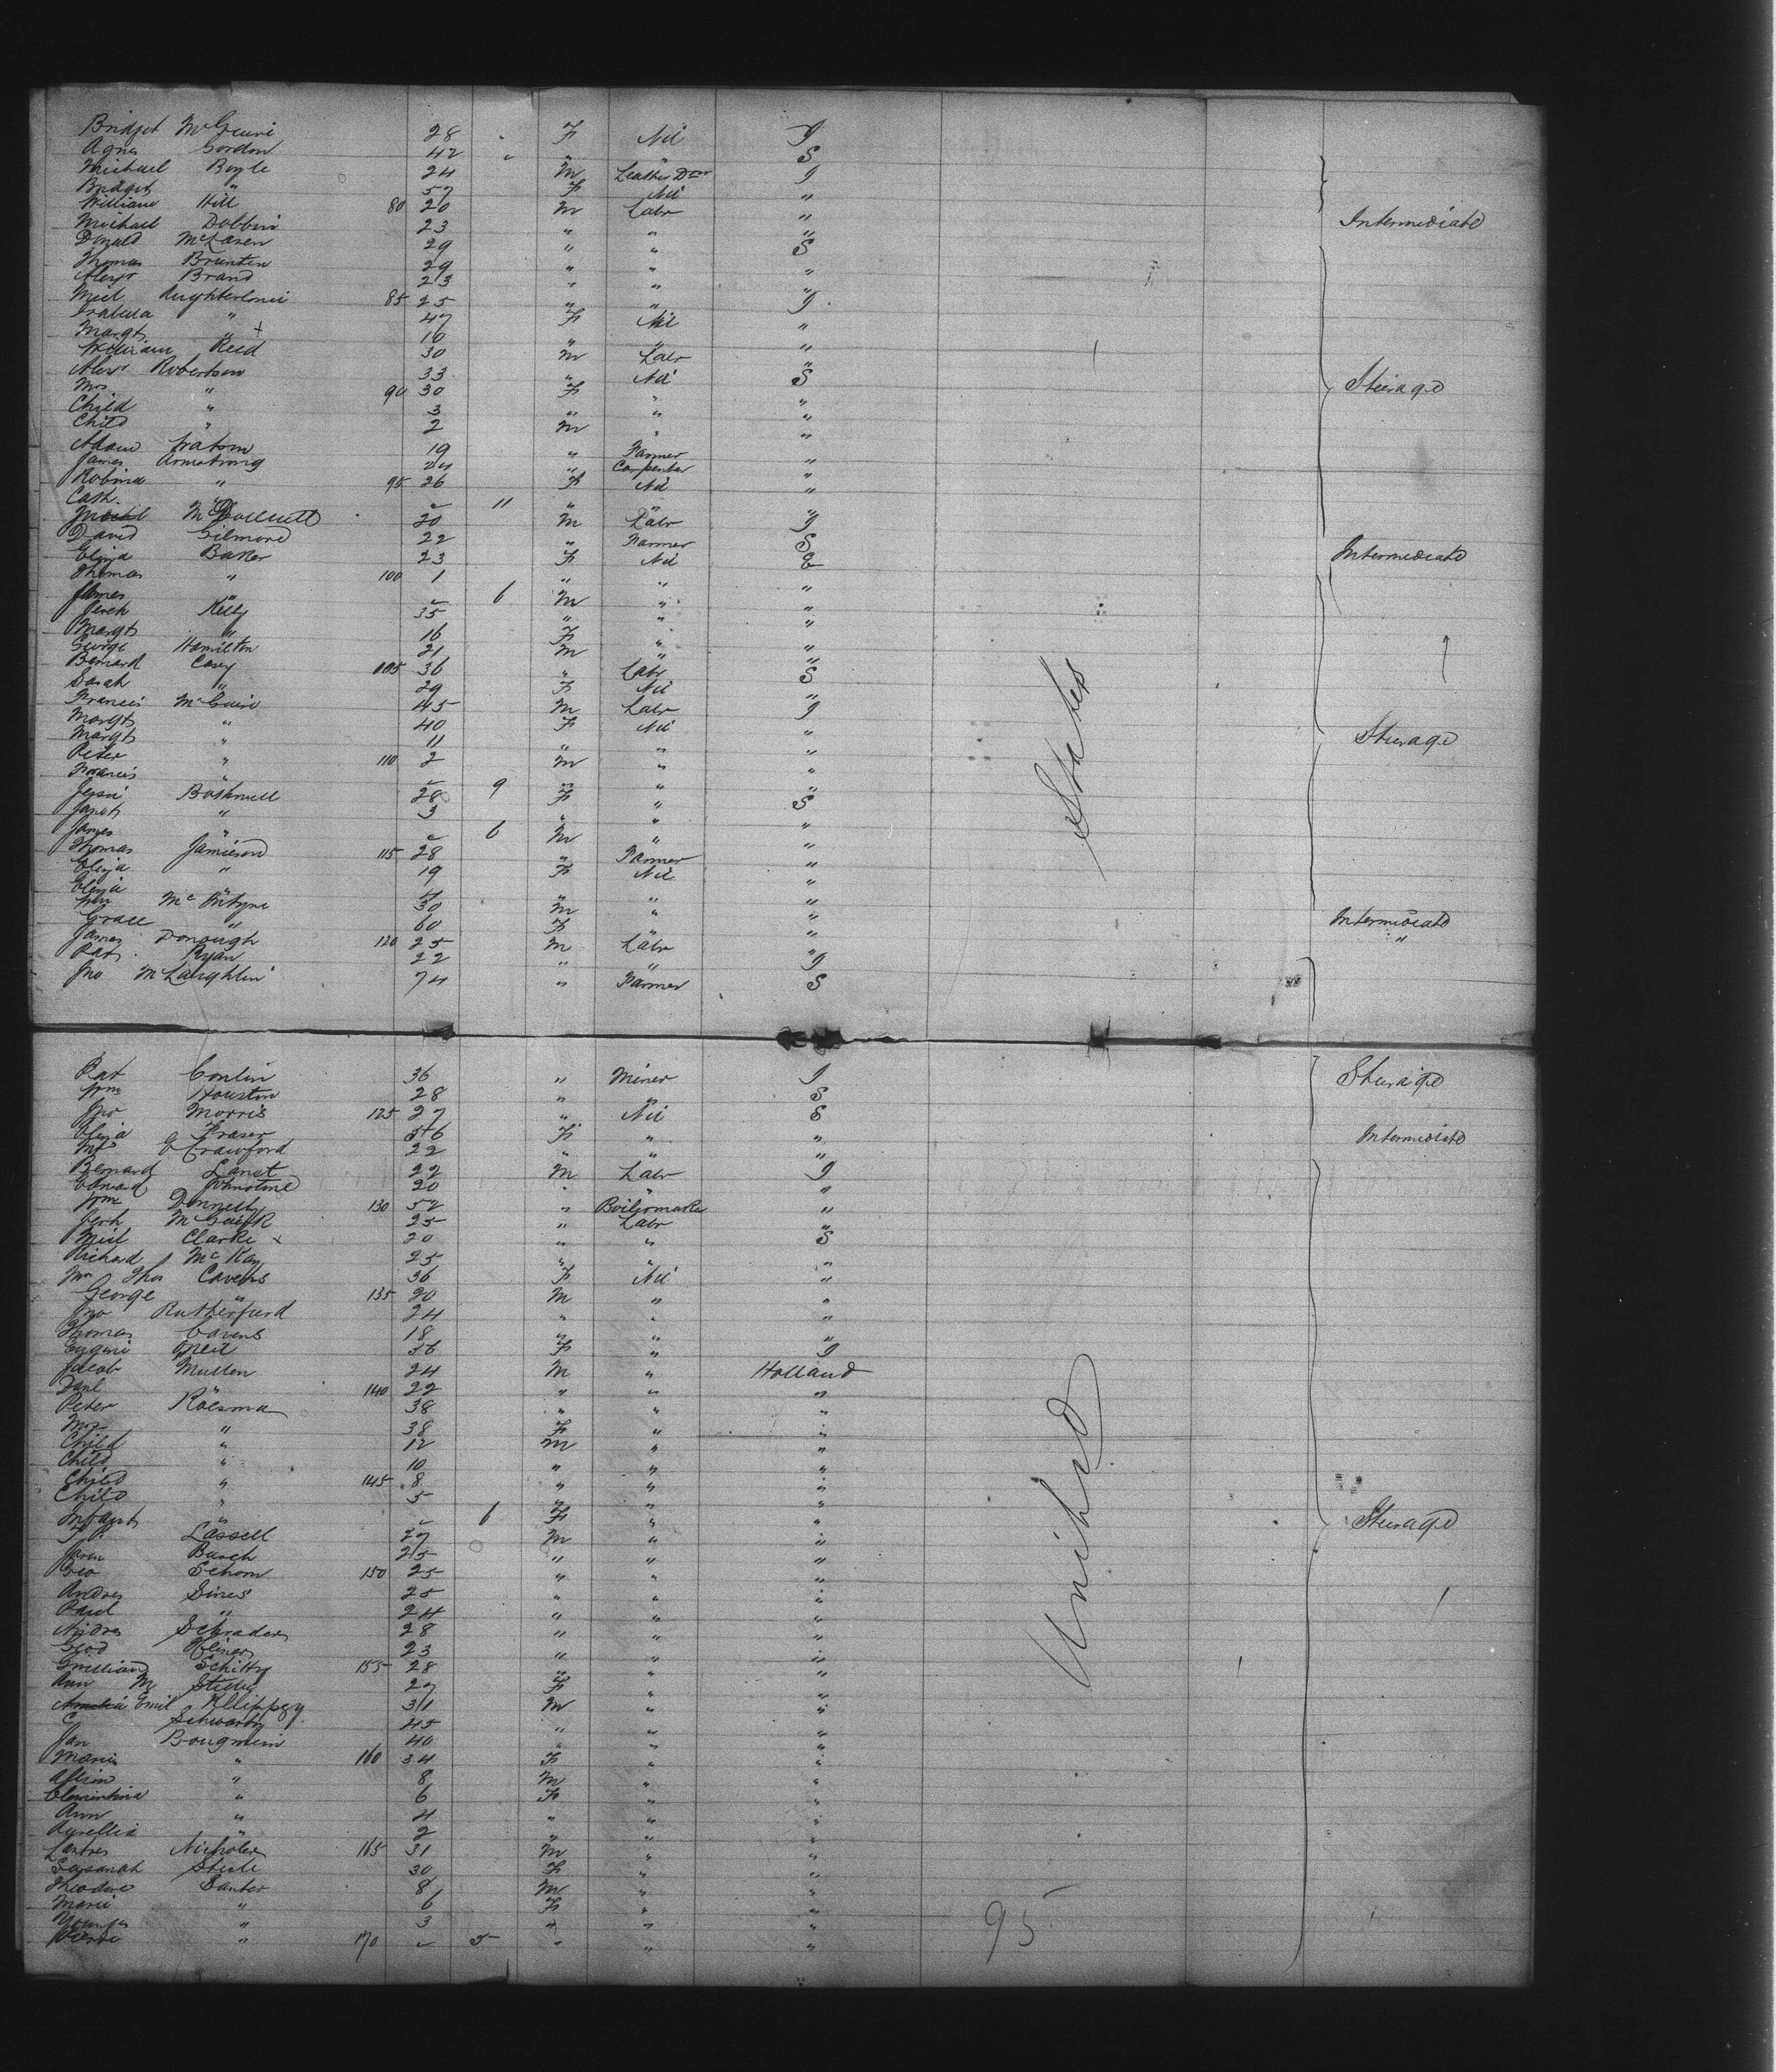 Bridget McGuire 28 " F Nil I
Agnes Gordon 42 " " " S
Michael Boyle 24 M Leather Dser I
Bridget " 57 F Nil "
William Hill 80 20 M Labr "
Michael Dobbin 23 " " " Intermediate
Donald McLaren 29 " " S
Thomas Brunton 29 " " "
Alexr Brand 23 " " "
Mich Aughterlonie 85 25 " " I
Isabella " 47 F Nil "
Margt " 10 " " "
William Reed 30 M Labr "
Alexr Robertson 33 " Nil S Steerage
Mrs " 90 30 F " "
Child " 3 " " "
Child " 2 M " "
Adam Watson 19 " Farmer "
James Armstrong 24 " Carpenter "
Robina " 95 26 F Nil "
Cath. " 11 " " "
McDonnell 20 M Labr I
David Gilmore 22 " Farmer S
Eliza Baker 23 F Nil E Intermediate
Thomas " 100 1 " " "
James " 6 M " "
Kelly 35 " " "
Margt " 16 F " "
George Hamilton 21 M " "
Bernard Casey 105 36 " Labr S
Sarah " 29 F Nil "
Francis McGuire 45 M Labr I
Margt " 40 F Nil " Steerage
Margt " 11 " " "
Peter " 110 2 M " "
Francis " 9 " " "
Jessie Bothwell 28 F " S
Janet " 3 " " "
James " 6 M " "
Thomas Jamieson 115 28 " Farmer "
Eliza " 19 F Nil "
Eliza " 4 " " "
Wm McIntyre 30 M " " Intermediate
Grace " 60 F " " "
James Donough 120 25 M Labr "
Pat. Ryan 22 " " I
Jno McLaughlin 74 " Farmer S
States
Pat Conlin 36 " Miner I Steerage
Wm Houston 28 " " S
Jno Morris 125 27 " Nil S
Eliza Fraser 36 F " " Intermediate
Mrs Crawford 22 " " "
Bernard 22 M Labr I
Edward Johnstone 20 " " "
Wm Donnelly 130 52 " Boilermaker "
McGurk 25 " Labr "
Mich Clarke 20 " " S
Richard McKay 25 " " "
Mrs Thos Cavens 36 F Nil "
George " 135 20 M " "
Jno Rutherfurd 24 " " "
Thomas Cavens 18 " " "
ONeil 36 F " I
Jacob Mullen 24 M " Holland
Danl " 140 22 " " "
Peter Kolsma 38 " " "
Mrs " 38 F " "
Child " 12 M " "
Child " 10 " " "
Child " 145 8 " " "
Child " 5 " " "
Infant " 6 F " " Steerage
Lassell 27 M " "
Busch 25 " " "
Geo Schom 150 25 " " "
Andrew Sines 25 " " "
Paul " 24 " " "
Andrew Schrader 28 " " "
23 " " "
William 155 28 " " "
Ann M 27 F " "
Emil 31 M " "
C Schwartz 45 " " "
Jan Bougmein 40 " " "
Maria " 160 34 F " "
" 8 M " "
Clementina " 6 F " "
Ann " 4 " " "
Aurellia " 2 " " "
Nicholas 165 31 M " "
Susanah Steele 30 F " "
Theodore Santer 8 M " "
Marie " 6 F " "
" 3 " " "
Pierre " 170 5 " " "
United
95